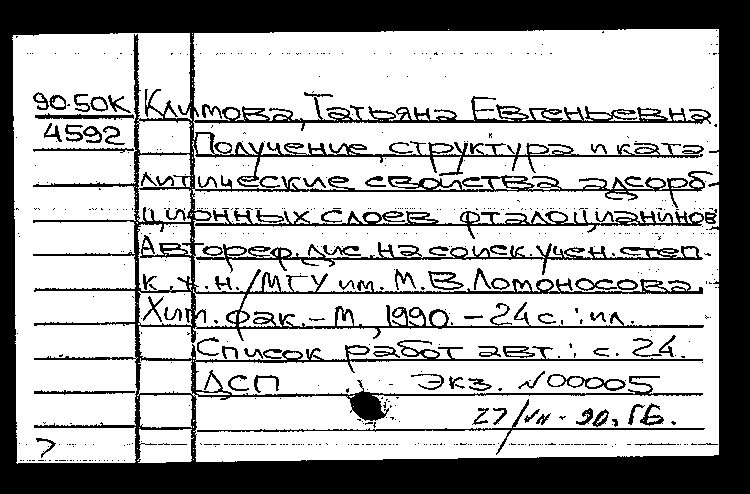 90-50К Климова, Татьяна Евгеньевна.
4592 Получение, структура и ката-
литические свойства адсорб-
ционных слоев фталоцианинов
Автореф. дис. на соиск. учен. степ.
к.х.н. /МГУ им. М.В.Ломоносова,
Хим. фак. - М., 1990. - 24 с. : ил.
Список работ авт.: с. 24.
ДСП Экз. №00005
27/VII-90, ГБ.